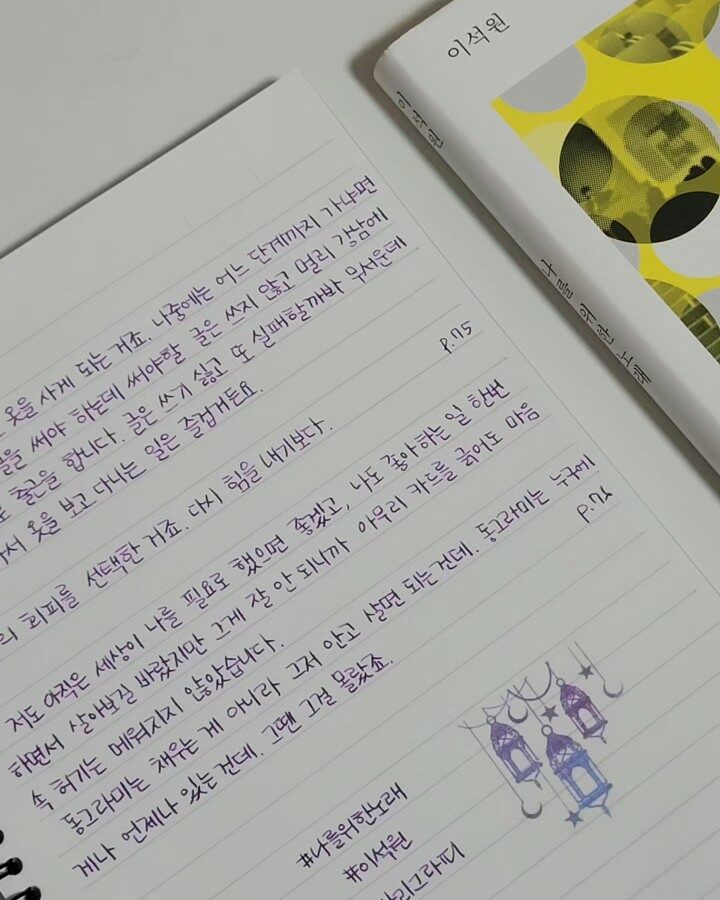 옷을 사게 되는 거죠. 나중에는 어느 단계까지 가냐면
을 써야 하는데 써야할 글은 쓰지 않고 멀리 강남에
출근을 합니다. 글은 쓰기 싫고 또 실패할까봐 무서운데
서 옷을 보고 다니는 일은 즐겁거든요.
p.75
회피를 선택한 거죠. 다시 힘을 내기보다.
저도 아직은 세상이 나를 필요로 했으면 좋겠고, 나도 좋아하는 일 한번
하면서 살아보길 바랐지만 그게 잘 안 되니까 아무리 카드를 긁어도 마음
속 허기는 메워지지 않았습니다.
동그라미는 채우는 게 아니라 그저 안고 살면 되는 건데. 동그라미는 누구에
게나 언제나 있는 건데. 그땐 그걸 몰랐죠.
p.76
#나를위한노래
#이석원
리그라피
이석원
이석원
나를 위한 노래